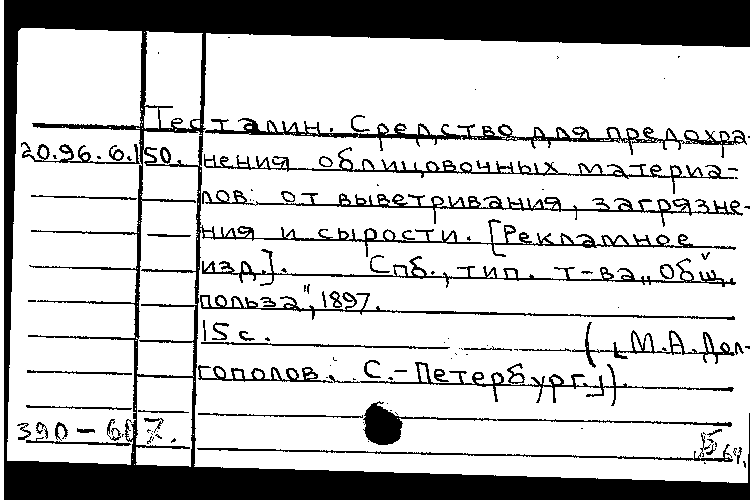 Тесталин. Средство для предохра-
20.96.6.150. нения облицовочных материа-
лов от выветривания, загрязне-
ния и сырости. [Рекламное
изд.]. Спб., тип. т-ва „Общ.
польза", 1897.
15 с. (⌞М.А. Дол-
гополов. С.-Петербург.⌟).
390-607.
64.